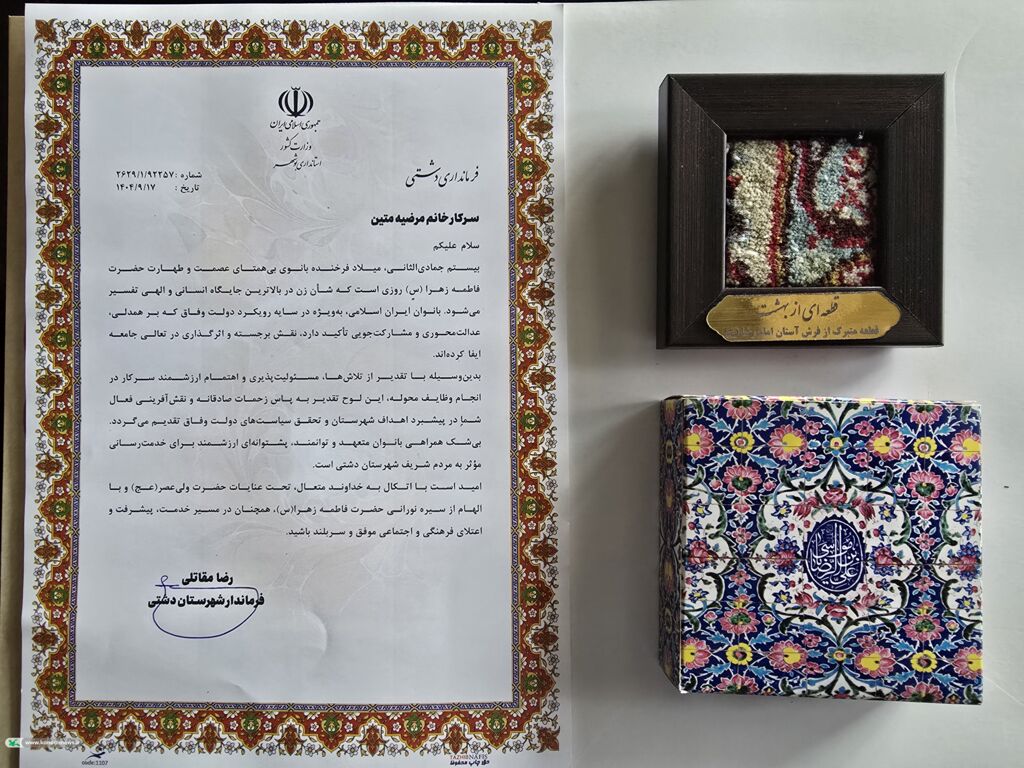 جمهوری اسلامی ایران
وزارت کشور
استانداری بوشهر
فرمانداری دشتی
شماره : ۲۶۲۹/۱/۹۲۲۵۷
تاریخ : ۱۴۰۴/۹/۱۷
سرکار خانم مرضیه متین
سلام علیکم
بیستم جمادی‌الثانی، میلاد فرخنده بانوی بی‌همتای عصمت و طهارت حضرت
فاطمه زهرا (س) روزی است که شأن زن در بالاترین جایگاه انسانی و الهی تفسیر
می‌شود. بانوان ایران اسلامی، به‌ویژه در سایه رویکرد دولت وفاق که بر همدلی،
عدالت‌محوری و مشارکت‌جویی تأکید دارد، نقش برجسته و اثرگذاری در تعالی جامعه
ایفا کرده‌اند.
بدین‌وسیله با تقدیر از تلاش‌ها، مسئولیت‌پذیری و اهتمام ارزشمند سرکار در
انجام وظایف محوله، این لوح تقدیر به پاس زحمات صادقانه و نقش‌آفرینی فعال
شما در پیشبرد اهداف شهرستان و تحقق سیاست‌های دولت وفاق تقدیم می‌گردد.
بی‌شک همراهی بانوان متعهد و توانمند، پشتوانه‌ای ارزشمند برای خدمت‌رسانی
مؤثر به مردم شریف شهرستان دشتی است.
امید است با اتکال به خداوند متعال، تحت عنایات حضرت ولی‌عصر(عج) و با
الهام از سیره نورانی حضرت فاطمه زهرا(س)، همچنان در مسیر خدمت، پیشرفت و
اعتلای فرهنگی و اجتماعی موفق و سربلند باشید.
رضا مقاتلی
فرماندار شهرستان دشتی
code:1107
TAZHIB NAFIS
حق چاپ محفوظ
قطعه ای از بهشت
قطعه متبرک از فرش آستان امام رضا